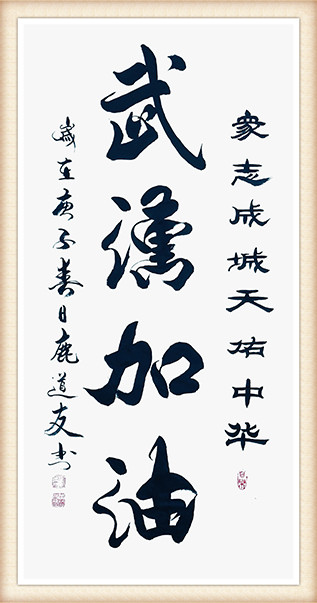 衆志成城天佑中华
武漢加油
歲在庚子春日鹿道友书